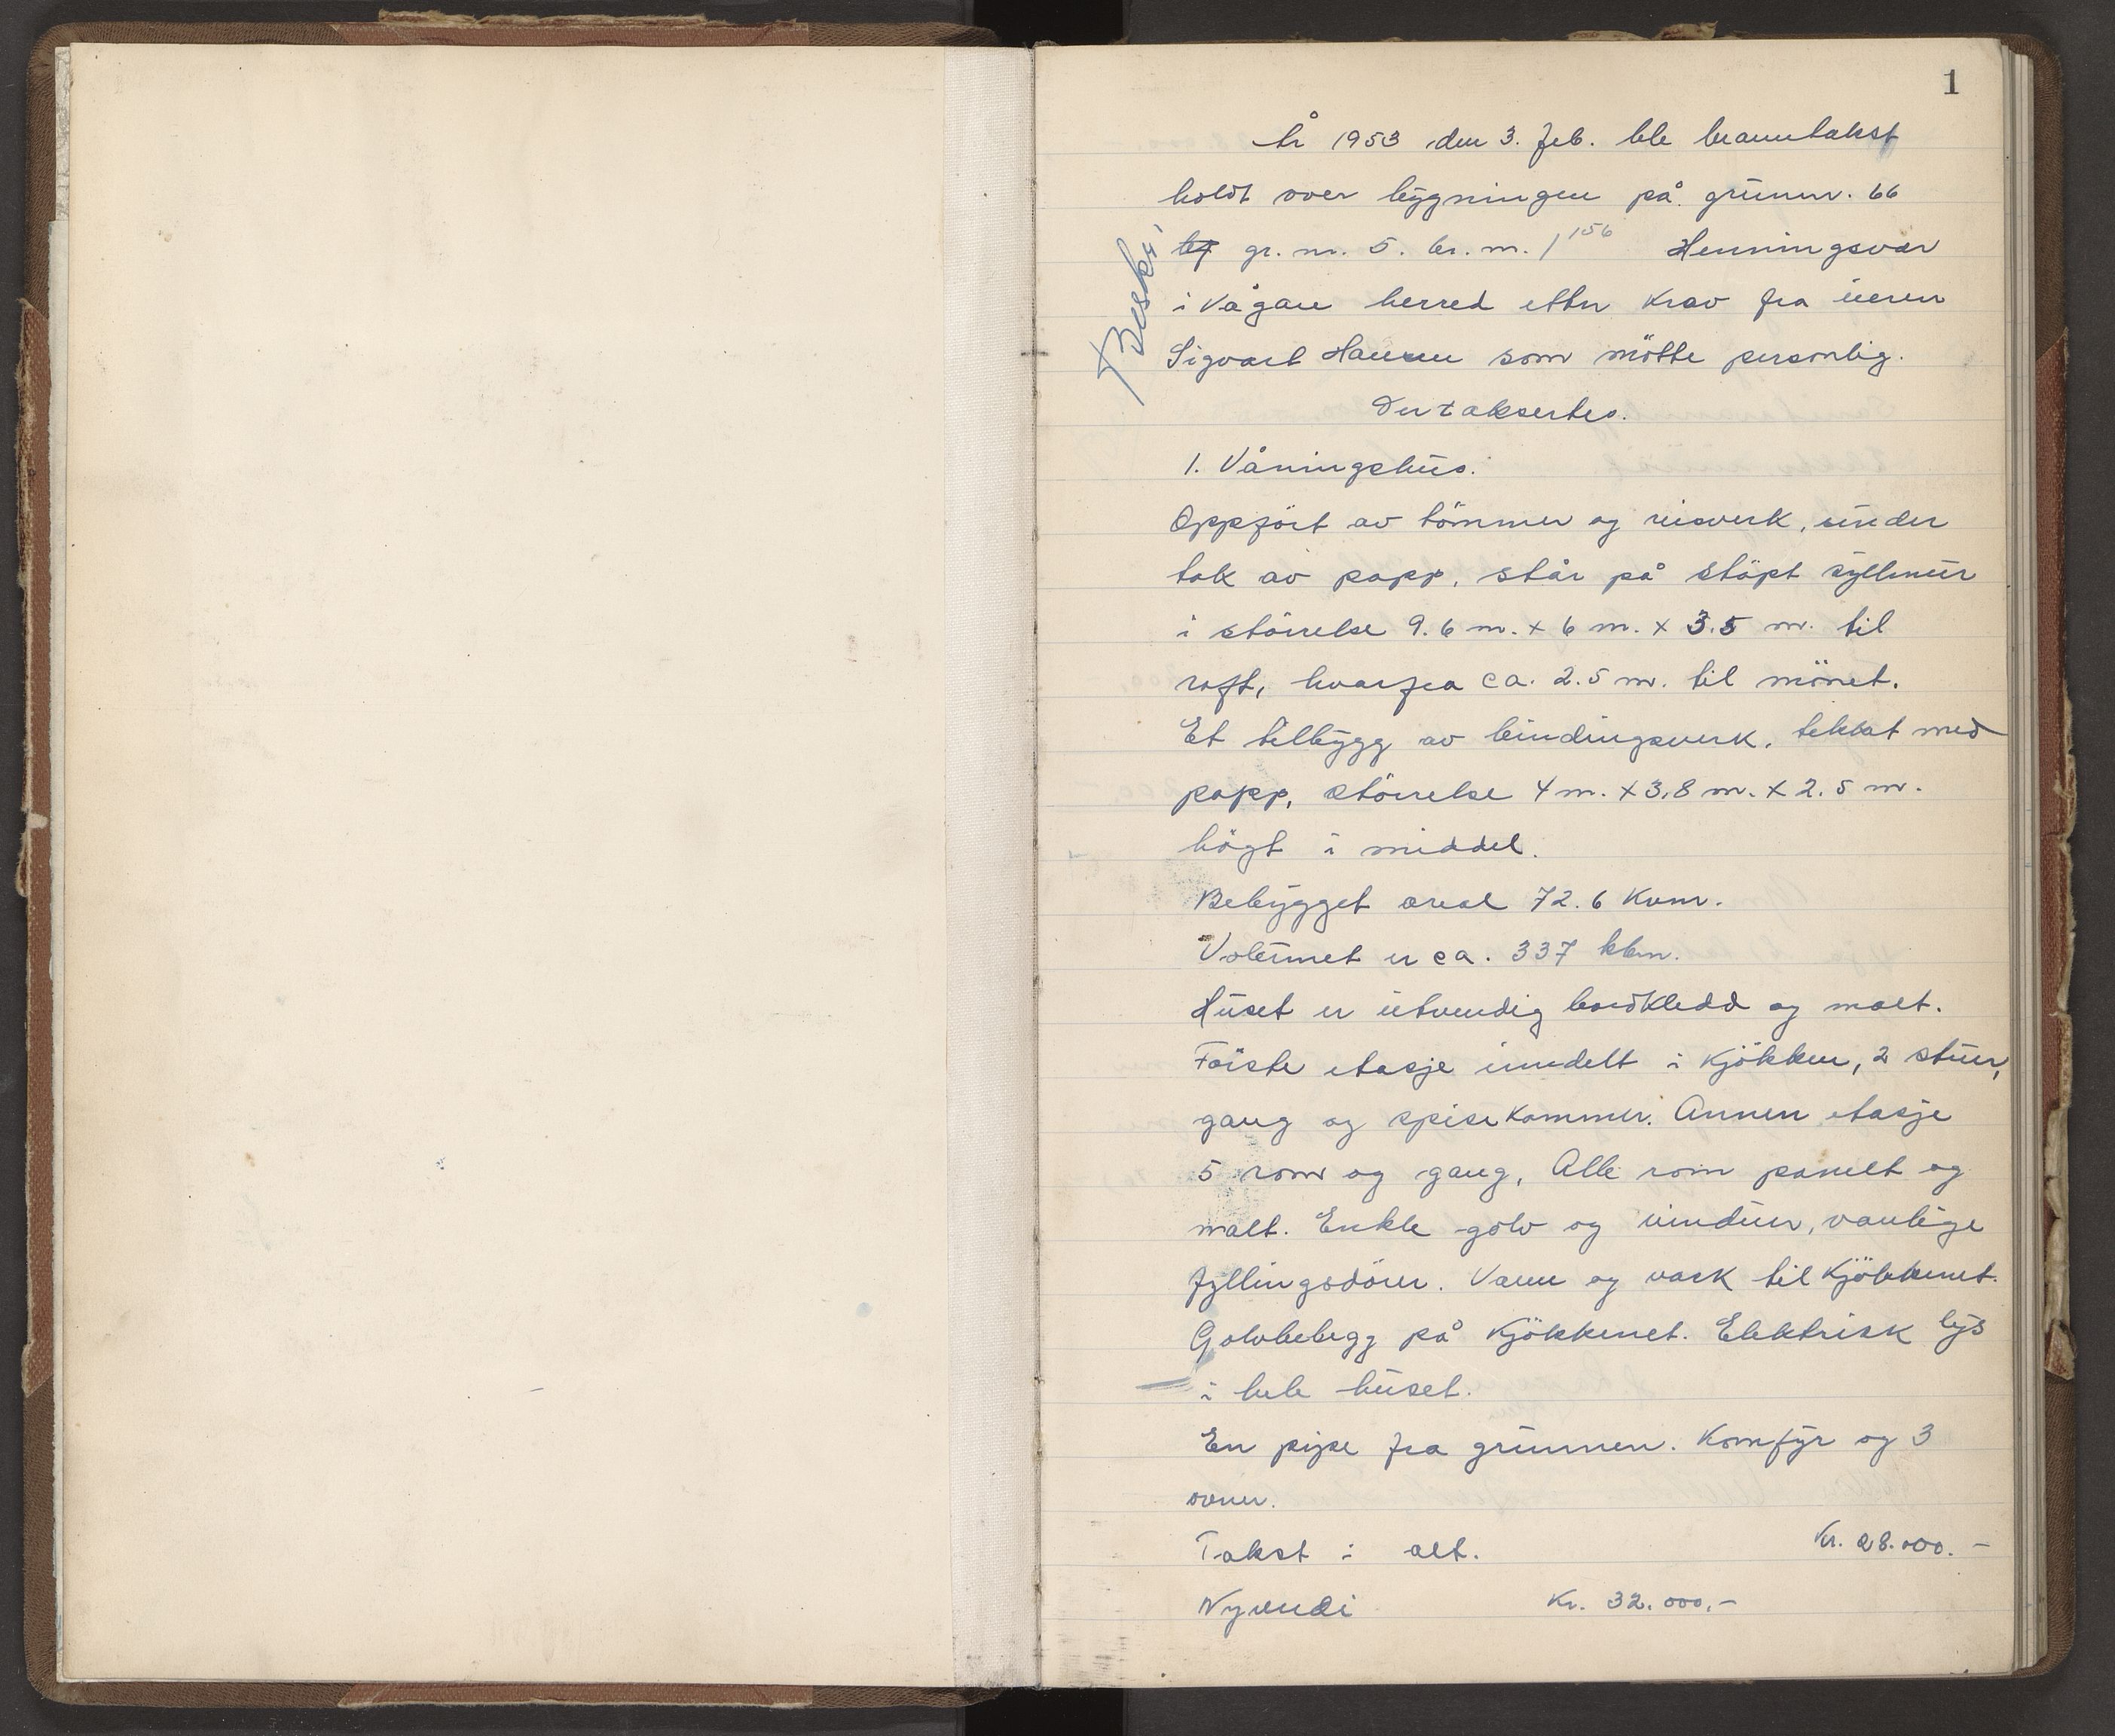 1
År 1953 den 3. Feb. ble branntakst
holdt over bygningen på grunnr. 66
av gr. nr. 5. br. nr. 1/156 Henningsvær
i Vågan herred etter krav fra eieren
Sigvart Hansen som mötte personlig.
Der taksertes.
1. Våningshus.
Oppfört av tömmer og reisverk, under
tak av papp, står på stöpt syllmur
i störrelse 9.6 m. x 6 m. x 3.5 m. til
raft, hvorfra ca. 2.5 m. til mönet.
Et tilbygg av bindingsverk, tekket med
papp, störrelse 4 m. x 3.8 m. x 2.5 m.
högt i middel.
Bebygget areal 72.6 kvm.
Volumet er ca. 337 kbm.
Huset er utvendig bordkledd og malt.
Förste etasje inndelt i kjökken, 2 stuer,
gang og spisekammer. Annen etasje
5 rom og gang, Alle rom panelt og
malt. Enkle golv og vinduer, vanlige
fyllingsdörer. Vann og vask til kjökkenet.
Golvbelegg på kjökkenet. Elektrisk lys
i hele huset.
En pipe fra grunnen. Komfyr og 3
ovner.
Takst i alt. Kr. 28.000.-
Nyverdi Kr. 32.000.-
Beskr.